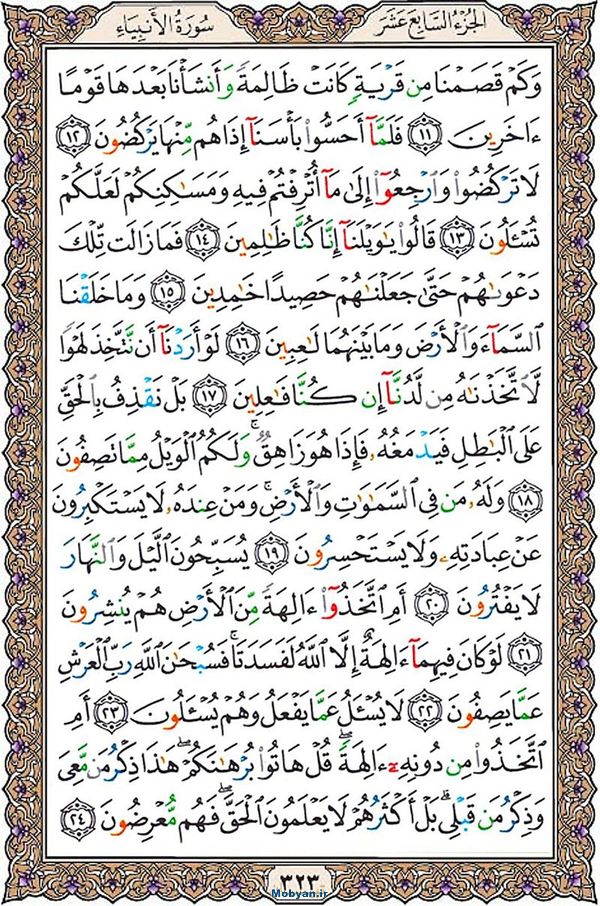 الجزء السابع عشر
سورة الأنبياء
وَكَمْ قَصَمْنَا مِن قَرْيَةٍ كَانَتْ ظَالِمَةً وَأَنشَأْنَا بَعْدَهَا قَوْمًا
ءَاخَرِينَ ١١ فَلَمَّآ أَحَسُّوا۟ بَأْسَنَآ إِذَا هُم مِّنْهَا يَرْكُضُونَ ١٢
لَا تَرْكُضُوا۟ وَٱرْجِعُوٓا۟ إِلَىٰ مَآ أُتْرِفْتُمْ فِيهِ وَمَسَٰكِنِكُمْ لَعَلَّكُمْ
تُسْـَٔلُونَ ١٣ قَالُوا۟ يَٰوَيْلَنَآ إِنَّا كُنَّا ظَٰلِمِينَ ١٤ فَمَا زَالَت تِّلْكَ
دَعْوَىٰهُمْ حَتَّىٰ جَعَلْنَٰهُمْ حَصِيدًا خَٰمِدِينَ ١٥ وَمَا خَلَقْنَا
ٱلسَّمَآءَ وَٱلْأَرْضَ وَمَا بَيْنَهُمَا لَٰعِبِينَ ١٦ لَوْ أَرَدْنَآ أَن نَّتَّخِذَ لَهْوًا
لَّٱتَّخَذْنَٰهُ مِن لَّدُنَّآ إِن كُنَّا فَٰعِلِينَ ١٧ بَلْ نَقْذِفُ بِٱلْحَقِّ
عَلَى ٱلْبَٰطِلِ فَيَدْمَغُهُۥ فَإِذَا هُوَ زَاهِقٌ ۚ وَلَكُمُ ٱلْوَيْلُ مِمَّا تَصِفُونَ
١٨ وَلَهُۥ مَن فِى ٱلسَّمَٰوَٰتِ وَٱلْأَرْضِ ۚ وَمَنْ عِندَهُۥ لَا يَسْتَكْبِرُونَ
عَنْ عِبَادَتِهِۦ وَلَا يَسْتَحْسِرُونَ ١٩ يُسَبِّحُونَ ٱلَّيْلَ وَٱلنَّهَارَ
لَا يَفْتُرُونَ ٢٠ أَمِ ٱتَّخَذُوٓا۟ ءَالِهَةً مِّنَ ٱلْأَرْضِ هُمْ يُنشِرُونَ
٢١ لَوْ كَانَ فِيهِمَآ ءَالِهَةٌ إِلَّا ٱللَّهُ لَفَسَدَتَا ۚ فَسُبْحَٰنَ ٱللَّهِ رَبِّ ٱلْعَرْشِ
عَمَّا يَصِفُونَ ٢٢ لَا يُسْـَٔلُ عَمَّا يَفْعَلُ وَهُمْ يُسْـَٔلُونَ ٢٣ أَمِ
ٱتَّخَذُوا۟ مِن دُونِهِۦٓ ءَالِهَةً ۖ قُلْ هَاتُوا۟ بُرْهَٰنَكُمْ ۖ هَٰذَا ذِكْرُ مَن مَّعِىَ
وَذِكْرُ مَن قَبْلِى ۗ بَلْ أَكْثَرُهُمْ لَا يَعْلَمُونَ ٱلْحَقَّ ۖ فَهُم مُّعْرِضُونَ ٢٤
٣٢٣
Mobyan.ir